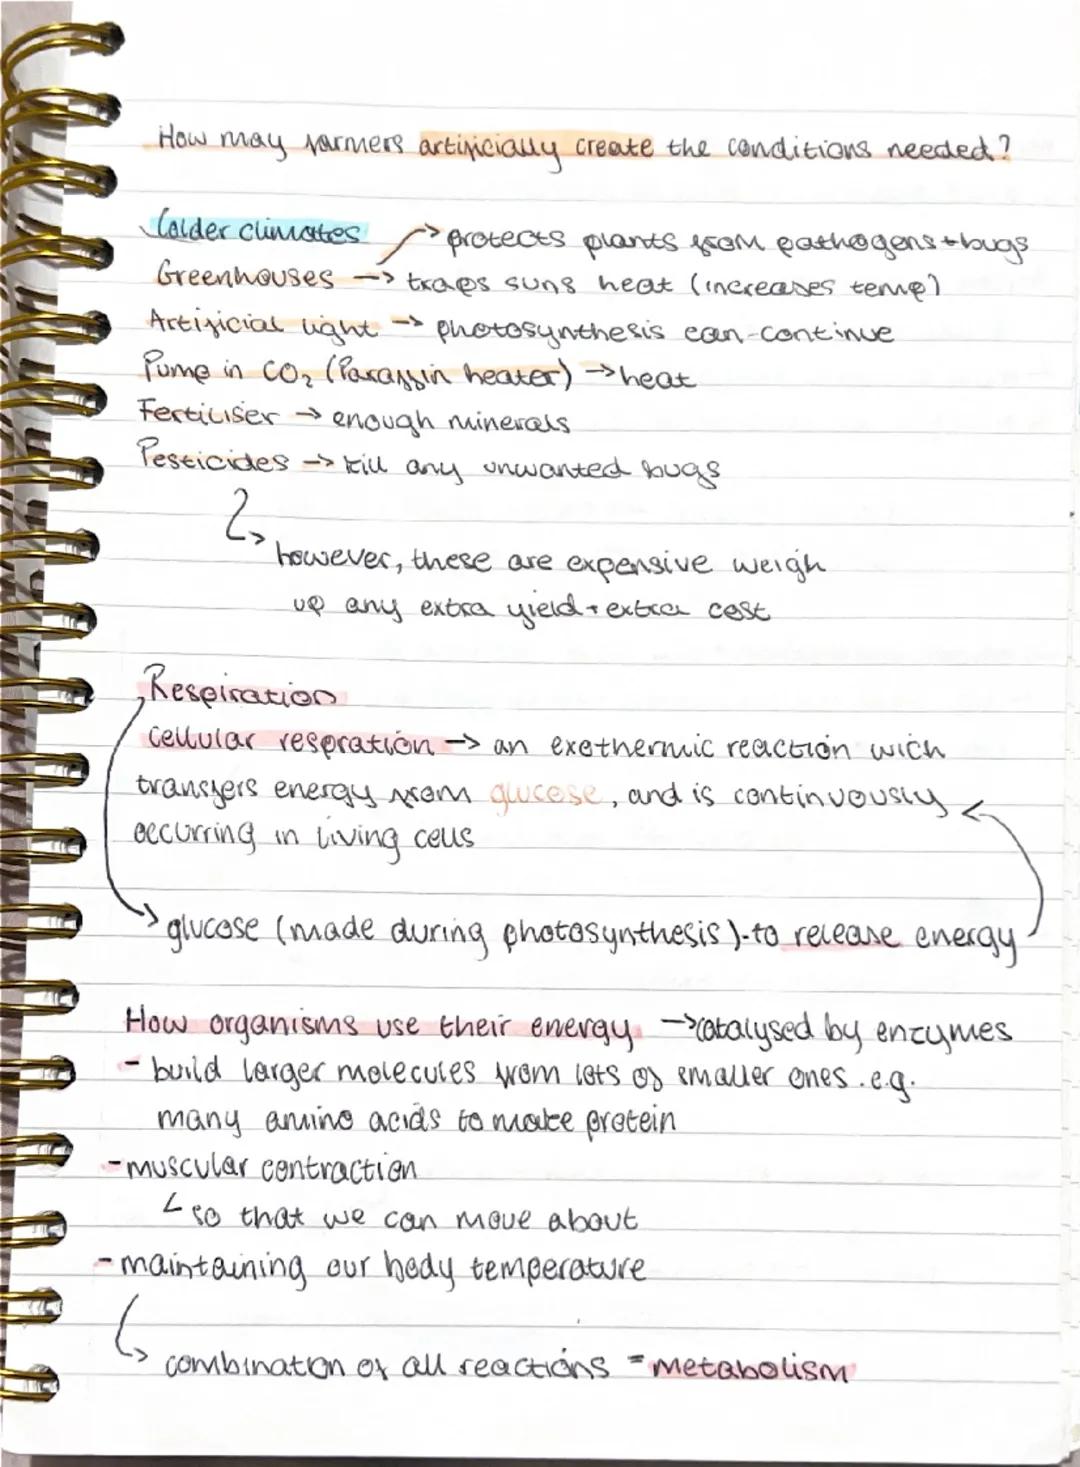 How may farmers artificially create the conditions needed?
Colder climates → protects plants from pathogens + bugs
Greenhouses → traps suns heat (increases temp)
Artificial light → photosynthesis can continue
Pump in CO₂ (Paraffin heater) → heat
Fertiliser → enough minerals
Pesticides → kill any unwanted bugs
however, these are expensive weigh
up any extra yield + extra cost
Respiration
Cellular respration → an exothermic reaction wich
transfers energy from glucose, and is continuously
occurring in living cells
glucose (made during photosynthesis)-to release energy
How organisms use their energy → catalysed by enzymes
- build larger molecules from lots of smaller ones .e.g.
many amino acids to make protein
- muscular contraction
so that we can move about
- maintaining our body temperature
combination of all reactions = metabolism